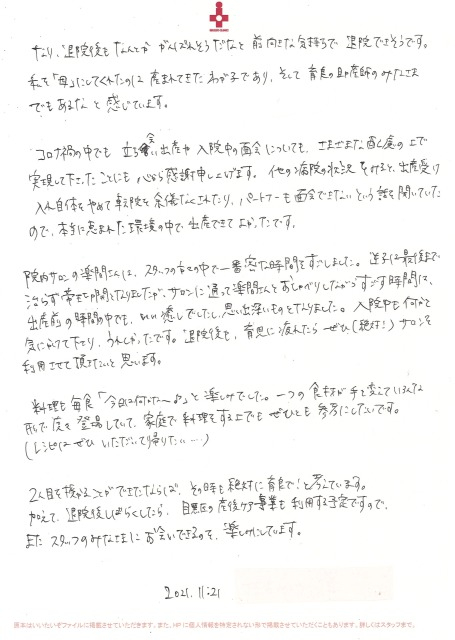 なり、退院後もなんとか がんばれそうだなと 前向きな気持ちで 退院できそうです。
私を「母」にしてくれたのは 産まれてきた わが子であり、そして 育良の助産師のみなさま
でもあるなと 感じています。
コロナ禍の中でも 立ち会い出産や 入院中の面会についても、さまざまな配慮の上で
実現して下さったことにも 心から感謝申し上げます。他の病院の状況をみると、出産受け
入れ自体をやめて転院を余儀なくされたり、パートナーも面会できないという話を聞いていた
ので、本当に恵まれた環境の中で、出産できて よかったです。
院内サロンの楽間さんは、スタッフの方々の中で一番密な時間をすごしました。逆子は最後まで
治らず 帝王切開となりましたが、サロンに通って楽間さんとおしゃべりしながらすごす時間は、
出産前の時間の中でも、癒しでしたし、思い出深いものとなりました。入院中も何かと
気にかけて下さり、うれしかったです。退院後も、育児に疲れたら ぜひ(絶対!)サロンを
利用させて頂きたいと 思います。
料理も 毎食「今日は何かな〜♪」と 楽しみでした。一つの食材が手を変えていろんな
形で度々登場していて、家庭で料理をする上でも ぜひとも 参考にしたいです。
(レシピはぜひ いただいて帰りたい…)
2人目を授かることができたならば、その時も絶対に育良で!と考えています。
加えて、退院後しばらくしたら、目黒区の産後ケア事業も利用する予定ですので、
また スタッフのみなさまに お会いできるのを、楽しみにしています。
2021.11.21
原本はいいたいぞファイルに掲載させていただきます。また、HPに個人情報を特定されない形で掲載させていただくこともあります。詳しくはスタッフまで。